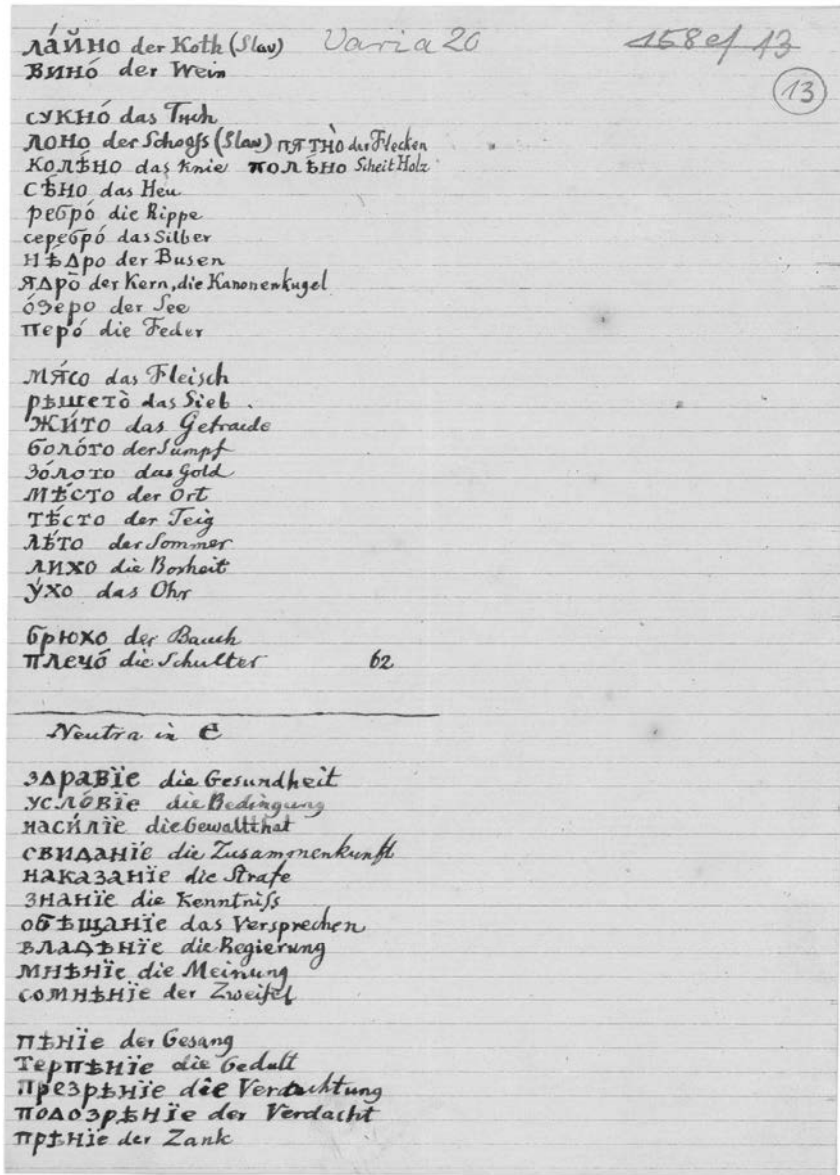 ла́йно der Koth (Slav) Varia 20 158 ef 13
вино́ der Wein
13
сукно́ das Tuch
лоно der Schoofs (Slav) пятно̀ der Flecken
колѣ́но das Knie полѣ́но Scheit Holz
сѣ́но das Heu
ребро́ die Rippe
серебро́ das Silber
нѣ́дро der Busen
ядро̀ der Kern, die Kanonenkugel
о́зеро der See
перо́ die Feder
мя́со das Fleisch
рѣшето̀ das Sieb
жи́то das Getraide
боло́то der Sumpf
зо́лото das Gold
мѣ́сто der Ort
тѣ́сто der Teig
лѣ́то der Sommer
лихо die Bosheit
у́хо das Ohr
брюхо der Bauch
плечо́ die Schulter 62
Neutra in е
здравїе die Gesundheit
усло́вїе die Bedingung
наси́лїе die Gewaltthat
свиданїе die Zusammenkunft
наказанїе die Strafe
знанїе die Kenntniss
обѣщанїе das Versprechen
владѣнїе die Regierung
мнѣнїе die Meinung
сомнѣнїе der Zweifel
пѣнїе der Gesang
терпѣнїе die Gedult
презрѣнїе die Verachtung
подозрѣнїе der Verdacht
прѣнїе der Zank